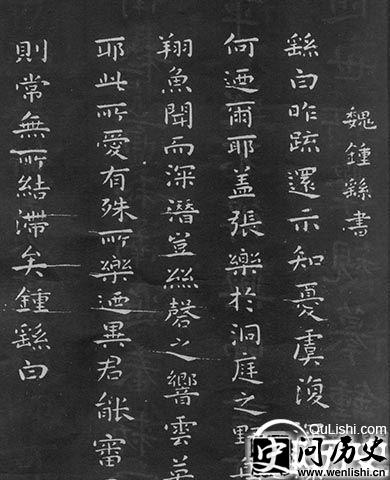 魏鍾繇書
繇白昨疏還示知憂虞復
何迺爾耶蓋張樂於洞庭之野
翔魚聞而深潛豈絲磬之響雲英
耶此所愛有殊所樂迺異君能審
則常無所結滯矣鍾繇白
QuLishi.com
史
问历史
www.wenlishi.com